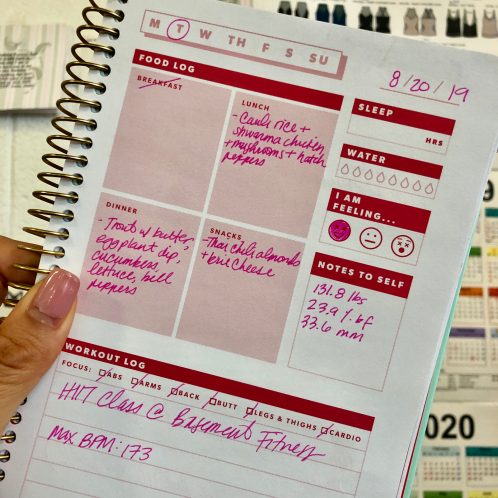 M T W TH F S SU
8/20/19
FOOD LOG
BREAKFAST
LUNCH
- Cauli rice +
shwarma chicken
+ mushrooms + hatch
peppers
DINNER
- Trout w/ butter,
eggplant dip,
cucumbers,
lettuce, bell
peppers
SNACKS
- Thai chili almonds
+ brie cheese
SLEEP
HRS
WATER
I AM
FEELING...
NOTES TO SELF
131.8 lbs
23.9 % bf
33.6 mm
WORKOUT LOG
FOCUS: ABS ARMS BACK BUTT LEGS & THIGHS CARDIO
HIIT Class @ Basement Fitness
Max BPM: 173
2020